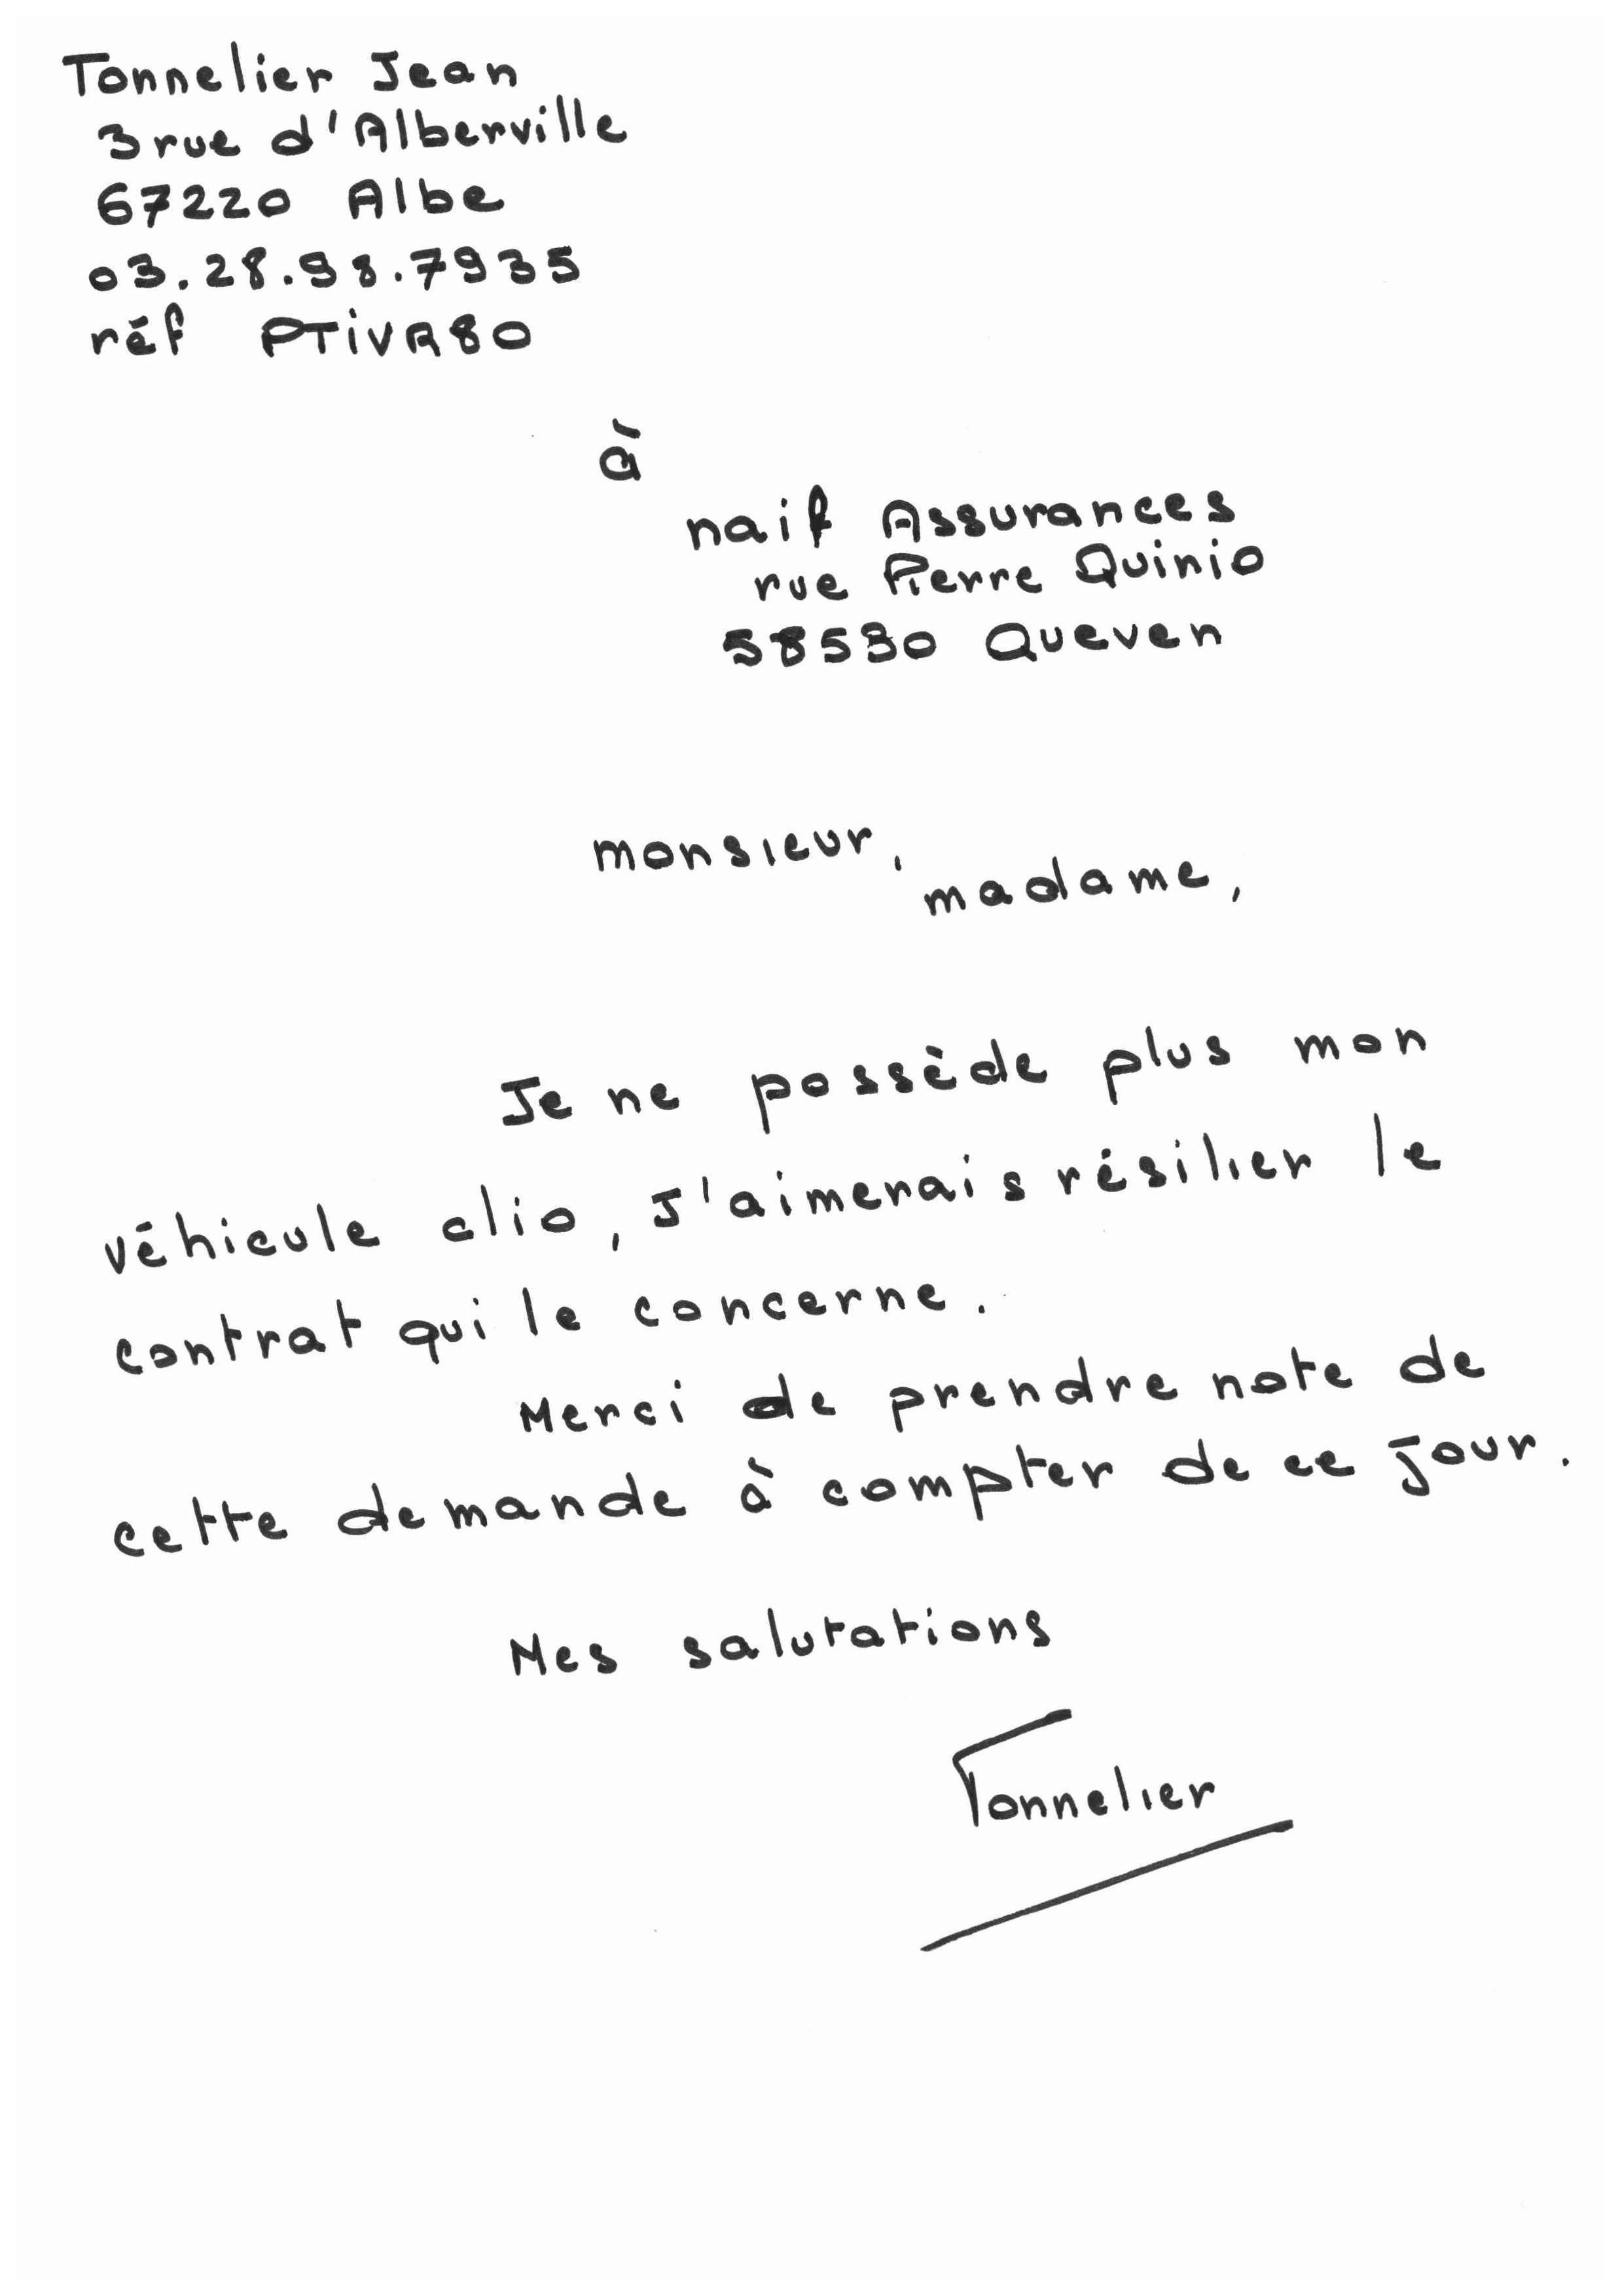 Tonnelier Jean
3 rue d'Alberville
67220 Albe
03.28.98.7935
réf PTiVA80
à
naif Assurances
rue Pierre Quinio
58530 Queven
monsieur,
madame,
Je ne possède plus mon
véhicule clio, J'aimerais résilier le
contrat qui le concerne.
Merci de prendre note de
cette demande à compter de ce jour.
Mes salutations
Tonnelier